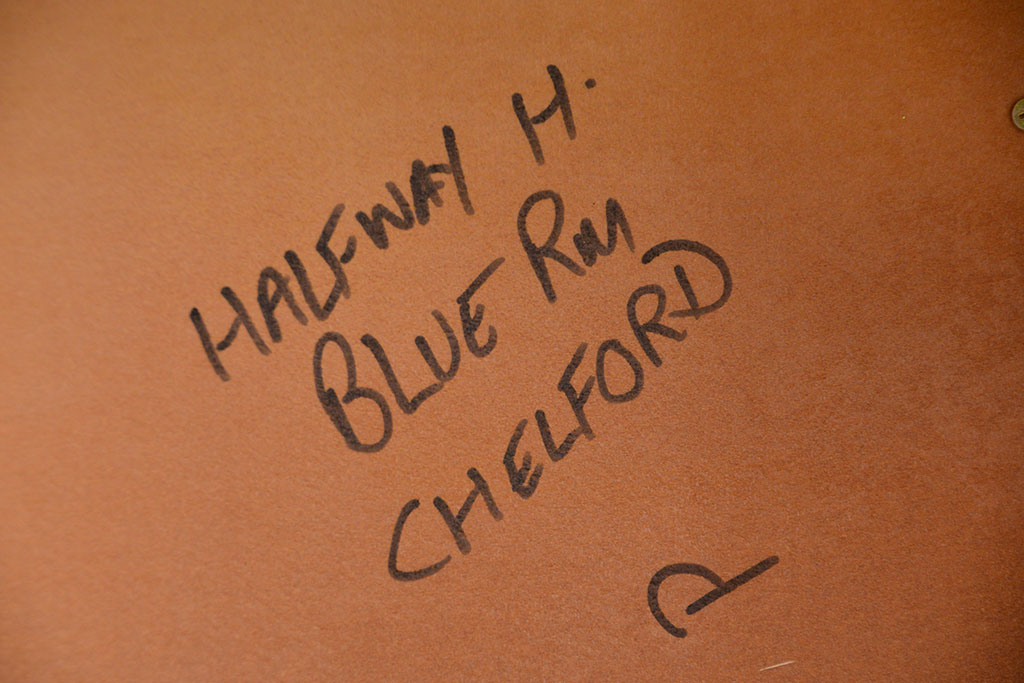 HALFWAY H.
BLUE RM
CHELFORD